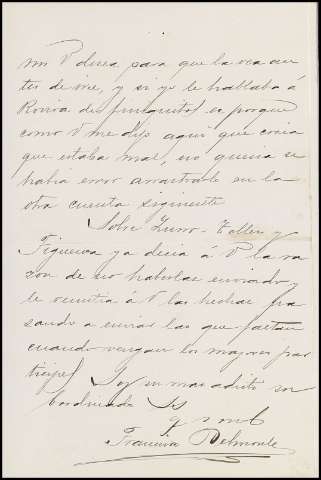 mi V desea para que la vea an
tes de irse, y si yo le hablaba á
Rovira de finiquitos es porque
como V me dijo aqui que creia
que estaba mal, no queria se
habia error arrastrarle en la
otra cuenta siguiente
Sobre Zurro-Taller y
Figueroa ya decia á V la ra
zon de no haberlas enviado y
le remitia á V las hechas pa
sando a enviar las que faltan
cuando vengan los mayores par
ticipes Soy su mas adicto su
bordinado SS
q s m b
Francisco Belmonte